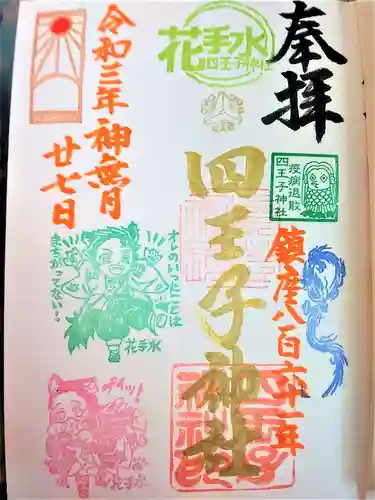 奉拝
花手水
四王子神社
疫病退散
四王子神社
鎮座八百六十一年
四王子神社
令和三年神無月
廿七日
オレのいったことは
まちがってない・・
花手水
花手水